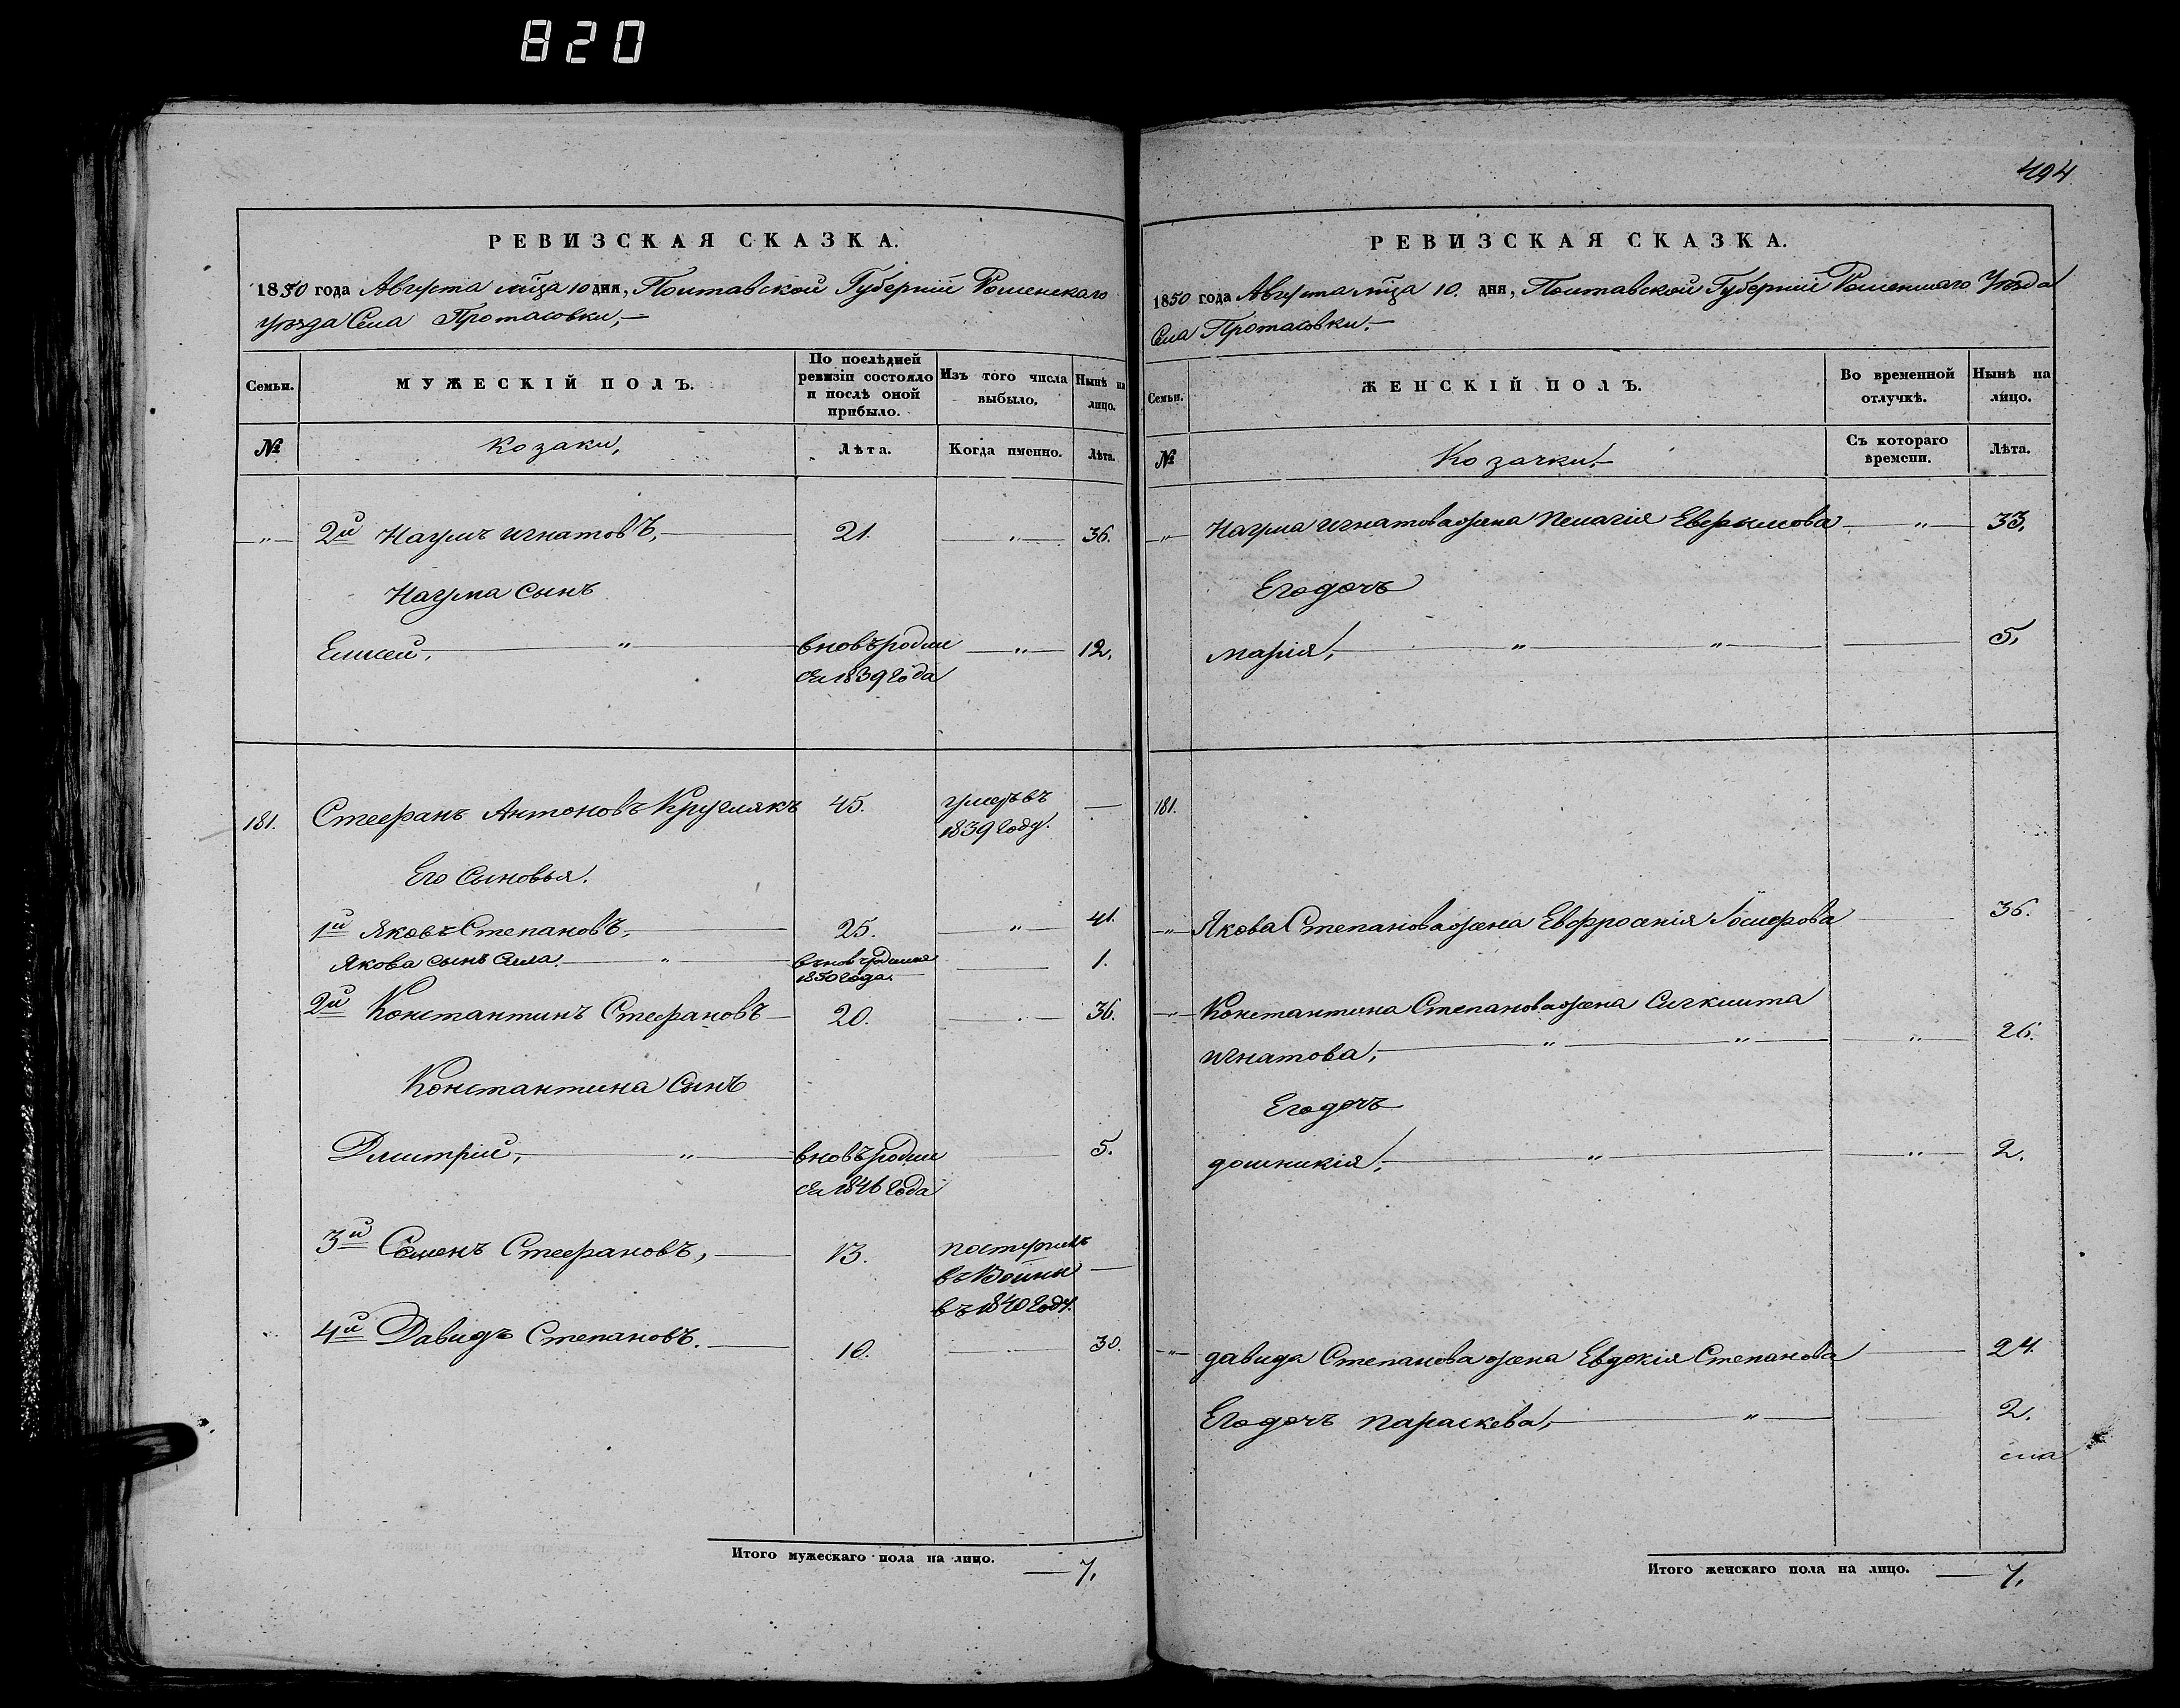 820
494
РЕВИЗСКАЯ СКАЗКА.
1850 года Августа мѣца 10 дня, Полтавской Губерніи Роменскаго
уѣзда Села Протасовки,
Семьи. МУЖЕСКІЙ ПОЛЪ. По послѣдней ревизіи состояло и послѣ оной прибыло. Изъ того числа выбыло. Нынѣ на лицо.
№ Козаки, Лѣта. Когда именно. Лѣта.
„ 2й Наумъ Игнатовъ, 21. „ 36.
Наума Сынъ
Елисей, „ вновь родил „ 12.
ся 1839 года
181. Стефанъ Антоновъ Круглякъ 45. умеръ въ —
1839 году.
Его Сыновья.
1й Яковъ Степановъ, 25. „ 41.
Якова сынъ Сила „ вновь родился 1.
1850 года.
2й Константинъ Стефановъ 20. 36.
Константина Сынъ
Дмитрій, „ вновь родил 5.
ся 1846 года
3й Семенъ Стефановъ, 13. поступилъ
въ 1840 году.
4й Давидъ Степановъ. 10. 30.
Итого мужескаго пола на лицо. — 7.
РЕВИЗСКАЯ СКАЗКА.
1850 года Августа мѣца 10. дня, Полтавской Губерніи Роменскаго Уѣзда
Села Протасовки.
Семьи. ЖЕНСКІЙ ПОЛЪ. Во временной отлучкѣ. Нынѣ на лицо.
№ Козачки. Съ котораго времени. Лѣта.
„ Наума Игнатова жена Пелагія „ 33.
Его дочь
Марія, „ „ 5.
181.
„ Якова Степанова жена Евфросинія Іосифова 36.
„ Константина Степанова жена
Игнатова, „ „ „ 26.
Его дочь
„ „ 2.
„ Давида Степанова жена Евдокія Степанова 24.
Его дочь Параскева, „ 2.
Итого женскаго пола на лицо. — 7.